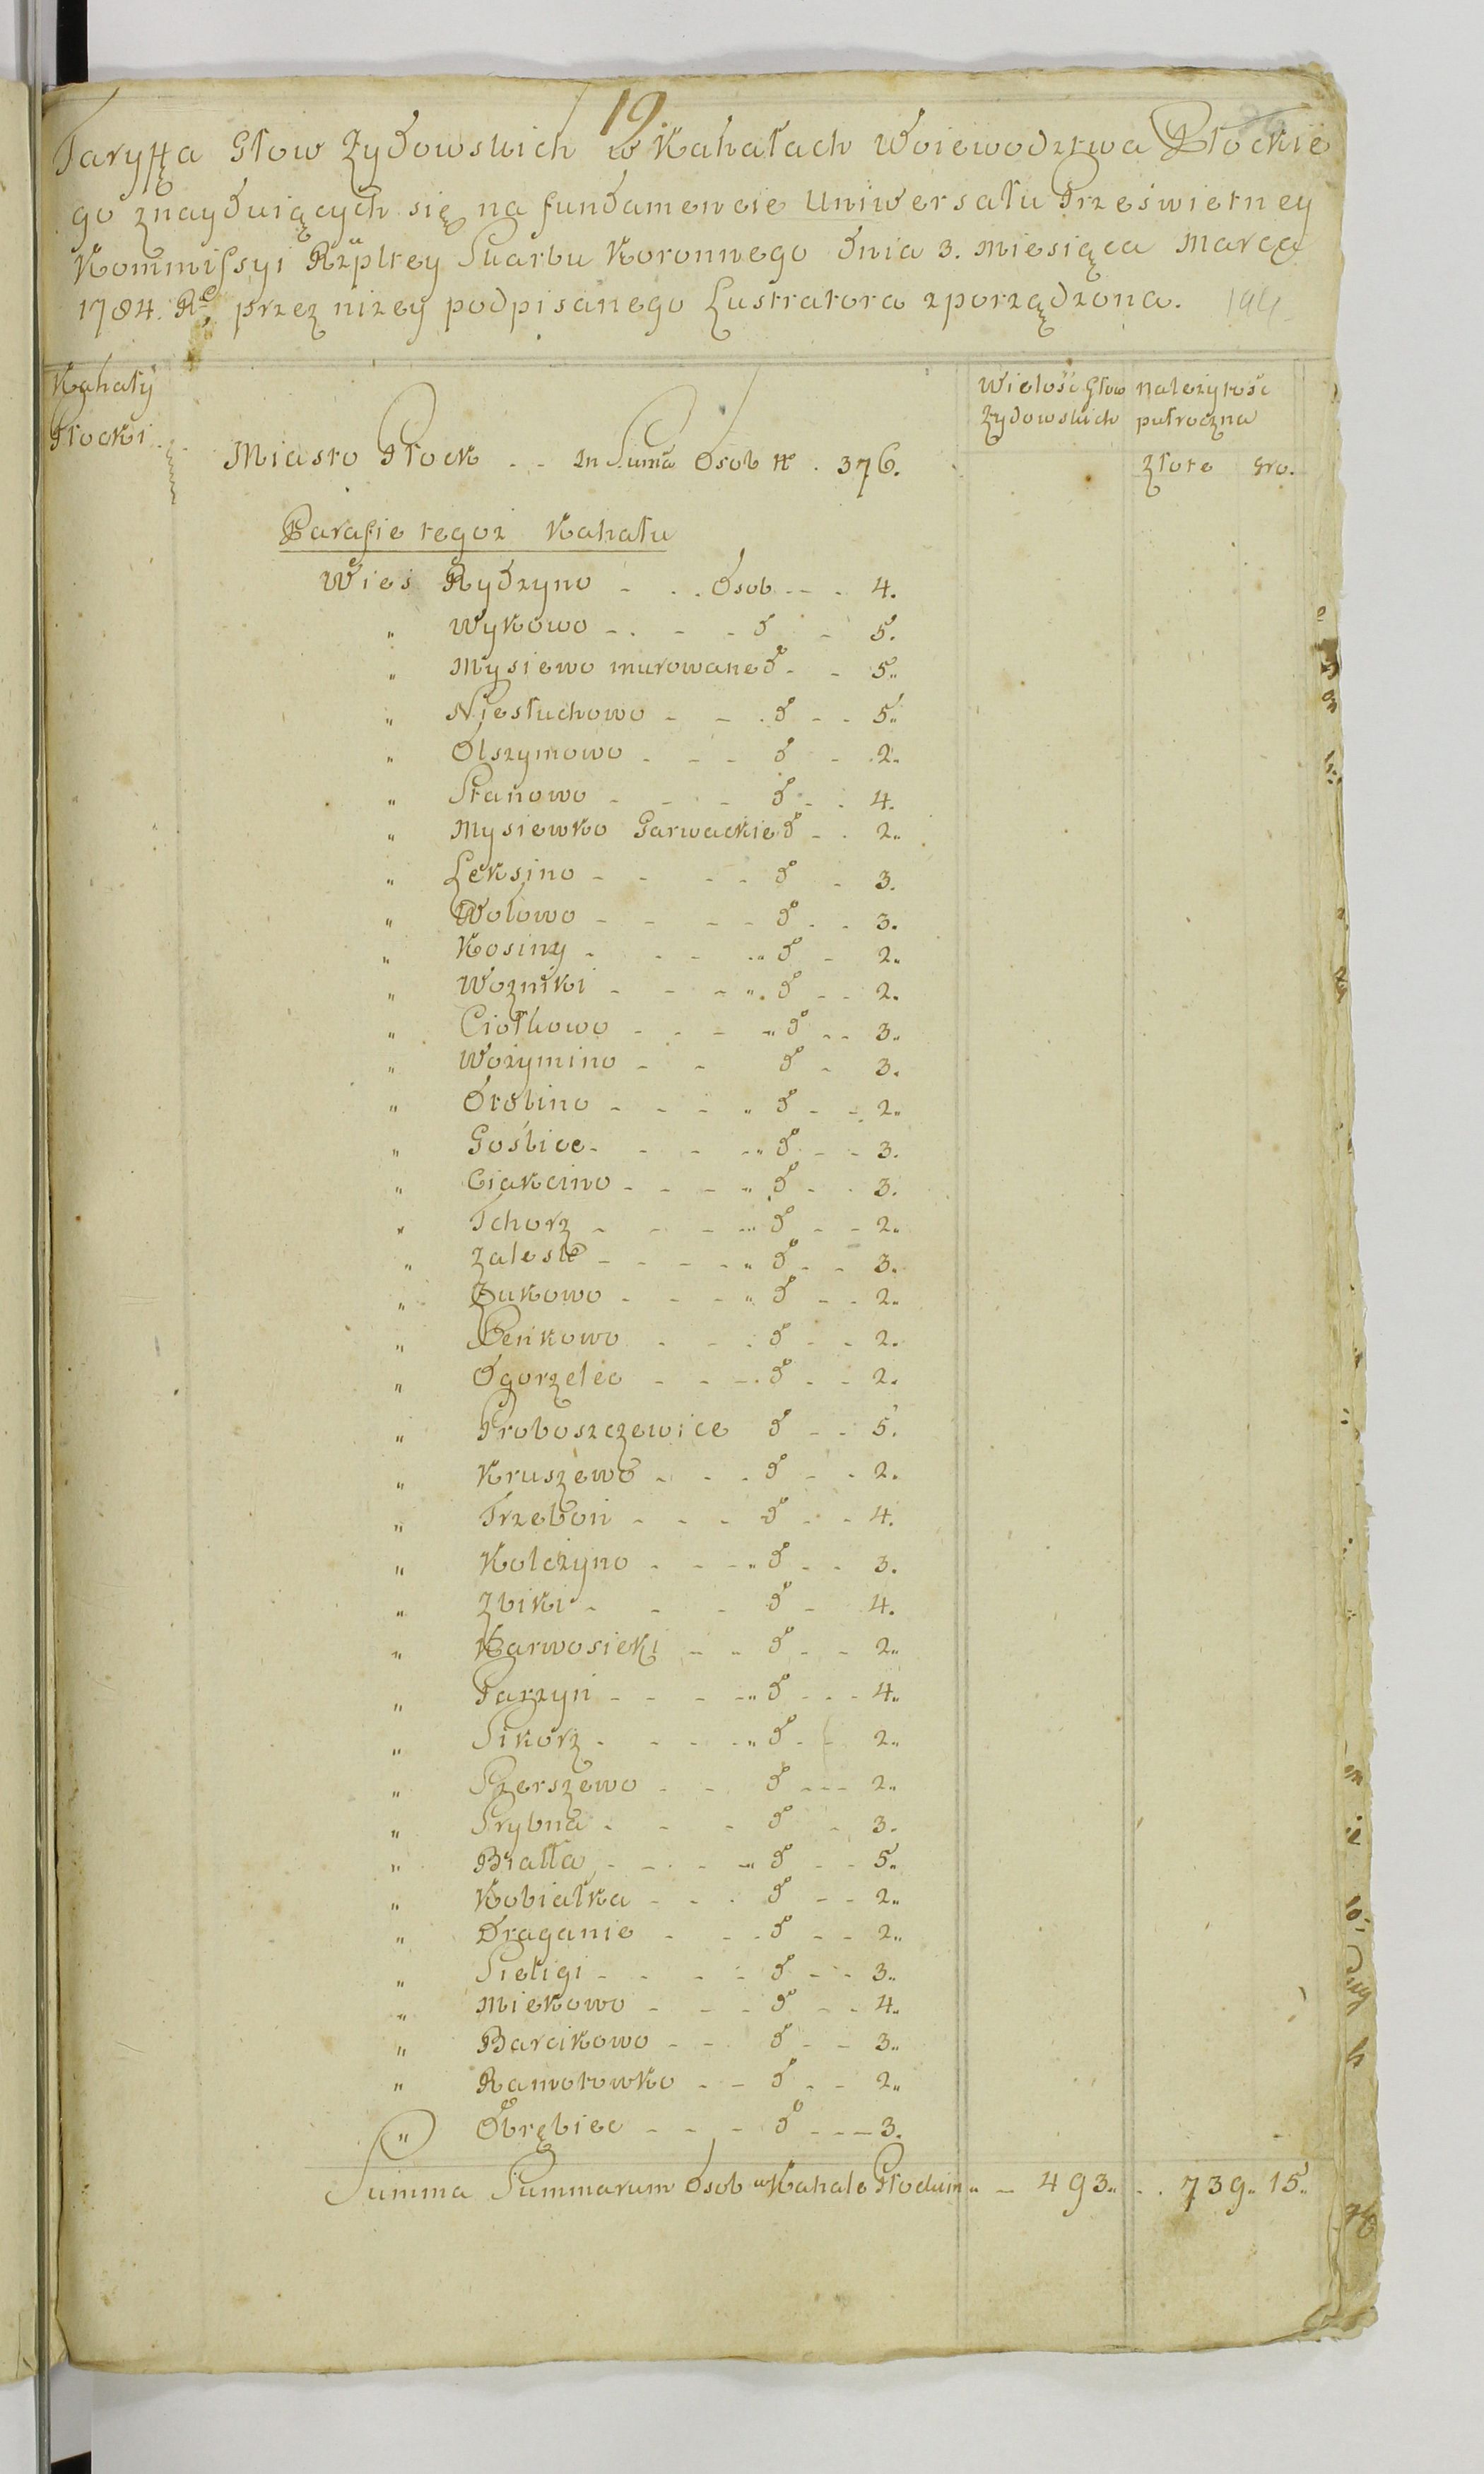 19.
Taryffa Głow Zydowskich w Kahałach Woiewodztwa Płockie
go znayduiących się na fundamencie Uniwersału Prześwietney
Kommissyi Rzpltey Skarbu Koronnego dnia 3. Miesiąca Marca
1784. Rº przez niżey podpisanego Lustratora zporządzona.
Kahały
Płocki
Wielość Głow Zydowskich
należytość pułroczna
złote gro.
Miasto Płock - - In Suma Osob N . 376.
Parafie tegoz Kahału
Wies Rydzyno - . . Osob - - . 4.
" Wykowo - . - - dº - 5.
" Mysiewo murowane dº - - 5.
" Niesłuchowo - - . dº - - 5.
" Olszymowo - - - dº - 2.
" Stanowo - - - dº - . 4.
" Mysiewko Garwackie dº - . 2.
" Leksino - - - - dº - 3.
" Wołowo - - - - dº . - 3.
" Kosiny - - - dº - 2.
" Wozniki - - - dº - - 2.
" Ciołkowo - - - dº - - 3.
" Wożymino - - dº - 3.
" Orobino - - - dº - - 2.
" Goślice - - - - dº - - 3.
" Ciakcino - - - dº - . 3.
" Tchorz - - - dº - - 2.
" Zalesie - - - - dº - - 3.
" Żukowo - - - dº - - 2.
" Penkowo - - . dº - - 2.
" Ogorzelec - - - . dº - - 2.
" Proboszczewice dº - - 5.
" Kruszewo - - . dº - - 2.
" Trzeboń - - - dº - - 4.
" Kolczyno - - - dº - - 3.
" Zbiki - - - dº - 4.
" Karwosieki - - dº - - 2.
" Parzyń - - - - dº - - - 4.
" Sikorz - - - - dº - - 2.
" Szerszewo - - dº - - - 2.
" Srybna - - - dº - 3.
" Białła - - - - dº - - 5.
" Kobiałka - - . dº - - 2.
" Draganie - - - dº - - 2.
" Sieligi - - - - dº - - 3.
" Miekowo - - - dº - - 4.
" Barcikowo - - dº - - 3.
" Ramotowko - - dº - - 2.
" Obrębiec - - - dº - - - 3.
Summa Summarum Osob w Kahale Płockim - 493. - . 739. 15.